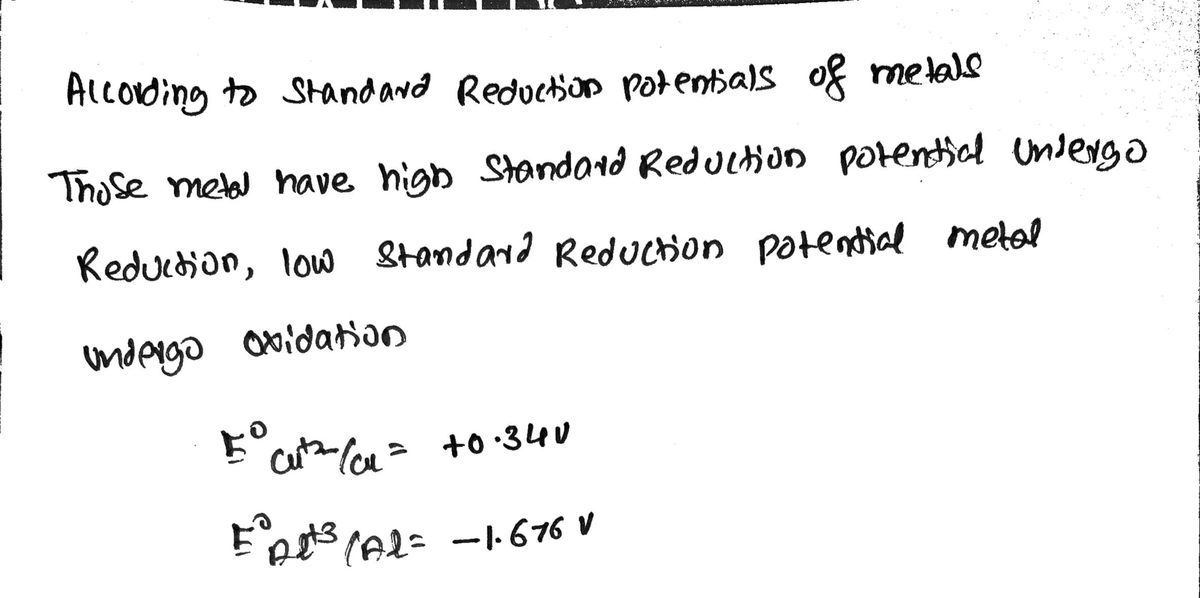 According to Standard Reduction potentials of metals
Those metal have high Standard Reduction potential undergo
Reduction, low Standard Reduction potential metal
undergo oxidation
E⁰ Cu⁺²/Cu = +0.34V
E⁰ Al⁺³/Al = -1.676 V